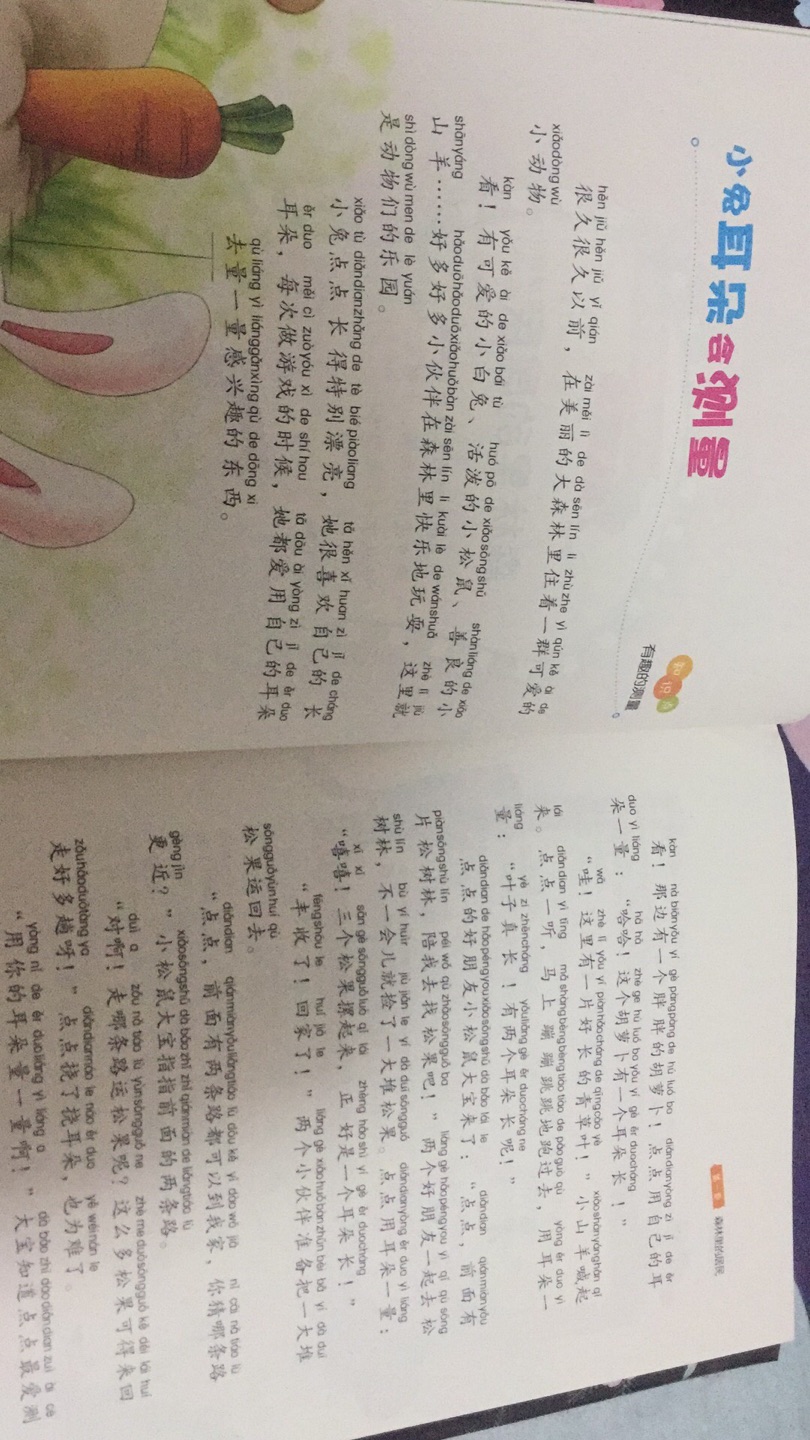 小兔耳朵会测量
知识点
有趣的测量
hěn jiǔ hěn jiǔ yǐ qián zài měi lì de dà sēn lín lǐ zhù zhe yì qún kě ài de
很久很久以前，在美丽的大森林里住着一群可爱的
xiǎo dòng wù
小动物。
kàn yǒu kě ài de xiǎo bái tù huó pō de xiǎo sōng shǔ shàn liáng de xiǎo
看！有可爱的小白兔、活泼的小松鼠、善良的小
shān yáng hǎo duō hǎo duō xiǎo huǒ bàn zài sēn lín lǐ kuài lè de wán shuǎ zhè lǐ jiù
山羊……好多好多小伙伴在森林里快乐地玩耍，这里就
shì dòng wù men de lè yuán
是动物们的乐园。
xiǎo tù diǎn dian zhǎng de tè bié piào liang tā hěn xǐ huan zì jǐ de cháng
小兔点点长得特别漂亮，她很喜欢自己的长
ěr duo měi cì zuò yóu xì de shí hou tā dōu ài yòng zì jǐ de ěr duo
耳朵，每次做游戏的时候，她都爱用自己的耳朵
qù liáng yì liáng gǎn xìng qù de dōng xi
去量一量感兴趣的东西。
第一章 森林里的居民
kàn nà biān yǒu yí gè pàng pàng de hú luó bo diǎn dian yòng zì jǐ de ěr
看！那边有一个胖胖的胡萝卜！点点用自己的耳
duo yì liáng hā hā zhè ge hú luó bo yǒu yí gè ěr duo cháng
朵一量：“哈哈！这个胡萝卜有一个耳朵长！”
wā zhè lǐ yǒu yí piàn hǎo cháng de qīng cǎo yè xiǎo shān yáng hǎn qǐ
“哇！这里有一片好长的青草叶！”小山羊喊起
lái diǎn dian yì tīng mǎ shàng bèng bèng tiào tiào de pǎo guò qù yòng ěr duo yì
来。点点一听，马上蹦蹦跳跳地跑过去，用耳朵一
liáng yè zi zhēn cháng yǒu liǎng gè ěr duo cháng ne
量：“叶子真长！有两个耳朵长呢！”
diǎn dian de hǎo péng you xiǎo sōng shǔ dà bǎo lái le diǎn dian qián miàn yǒu
点点的好朋友小松鼠大宝来了：“点点，前面有
piàn sōng shù lín péi wǒ qù zhǎo sōng guǒ ba liǎng gè hǎo péng you yì qǐ qù sōng
片松树林，陪我去找松果吧！”两个好朋友一起去松
shù lín bù yí huìr jiù jiǎn le yí dà duī sōng guǒ diǎn dian yòng ěr duo yì liáng
树林，不一会儿就捡了一大堆松果。点点用耳朵一量：
xī xī sān gè sōng guǒ luò qǐ lái zhèng hǎo shì yí gè ěr duo cháng
“嘻嘻！三个松果摞起来，正好是一个耳朵长！”
fēng shōu le huí jiā le liǎng gè xiǎo huǒ bàn zhǔn bèi bǎ yí dà duī
“丰收了！回家了！”两个小伙伴准备把一大堆
sōng guǒ yùn huí qù
松果运回去。
diǎn dian qián miàn yǒu liǎng tiáo lù dōu kě yǐ dào wǒ jiā nǐ cāi nǎ tiáo lù
“点点，前面有两条路都可以到我家，你猜哪条路
gèng jìn xiǎo sōng shǔ dà bǎo zhǐ zhǐ qián miàn de liǎng tiáo lù
更近？”小松鼠大宝指指前面的两条路。
duì a zǒu nǎ tiáo lù yùn sōng guǒ ne zhè me duō sōng guǒ kě děi lái huí
“对啊！走哪条路运松果呢？这么多松果可得来回
zǒu hǎo duō tàng ya diǎn dian náo le náo ěr duo yě wéi nán le
走好多趟呀！”点点挠了挠耳朵，也为难了。
yòng nǐ de ěr duo liáng yì liáng a dà bǎo zhī dào diǎn dian zuì ài cè
“用你的耳朵量一量啊！”大宝知道点点最爱测